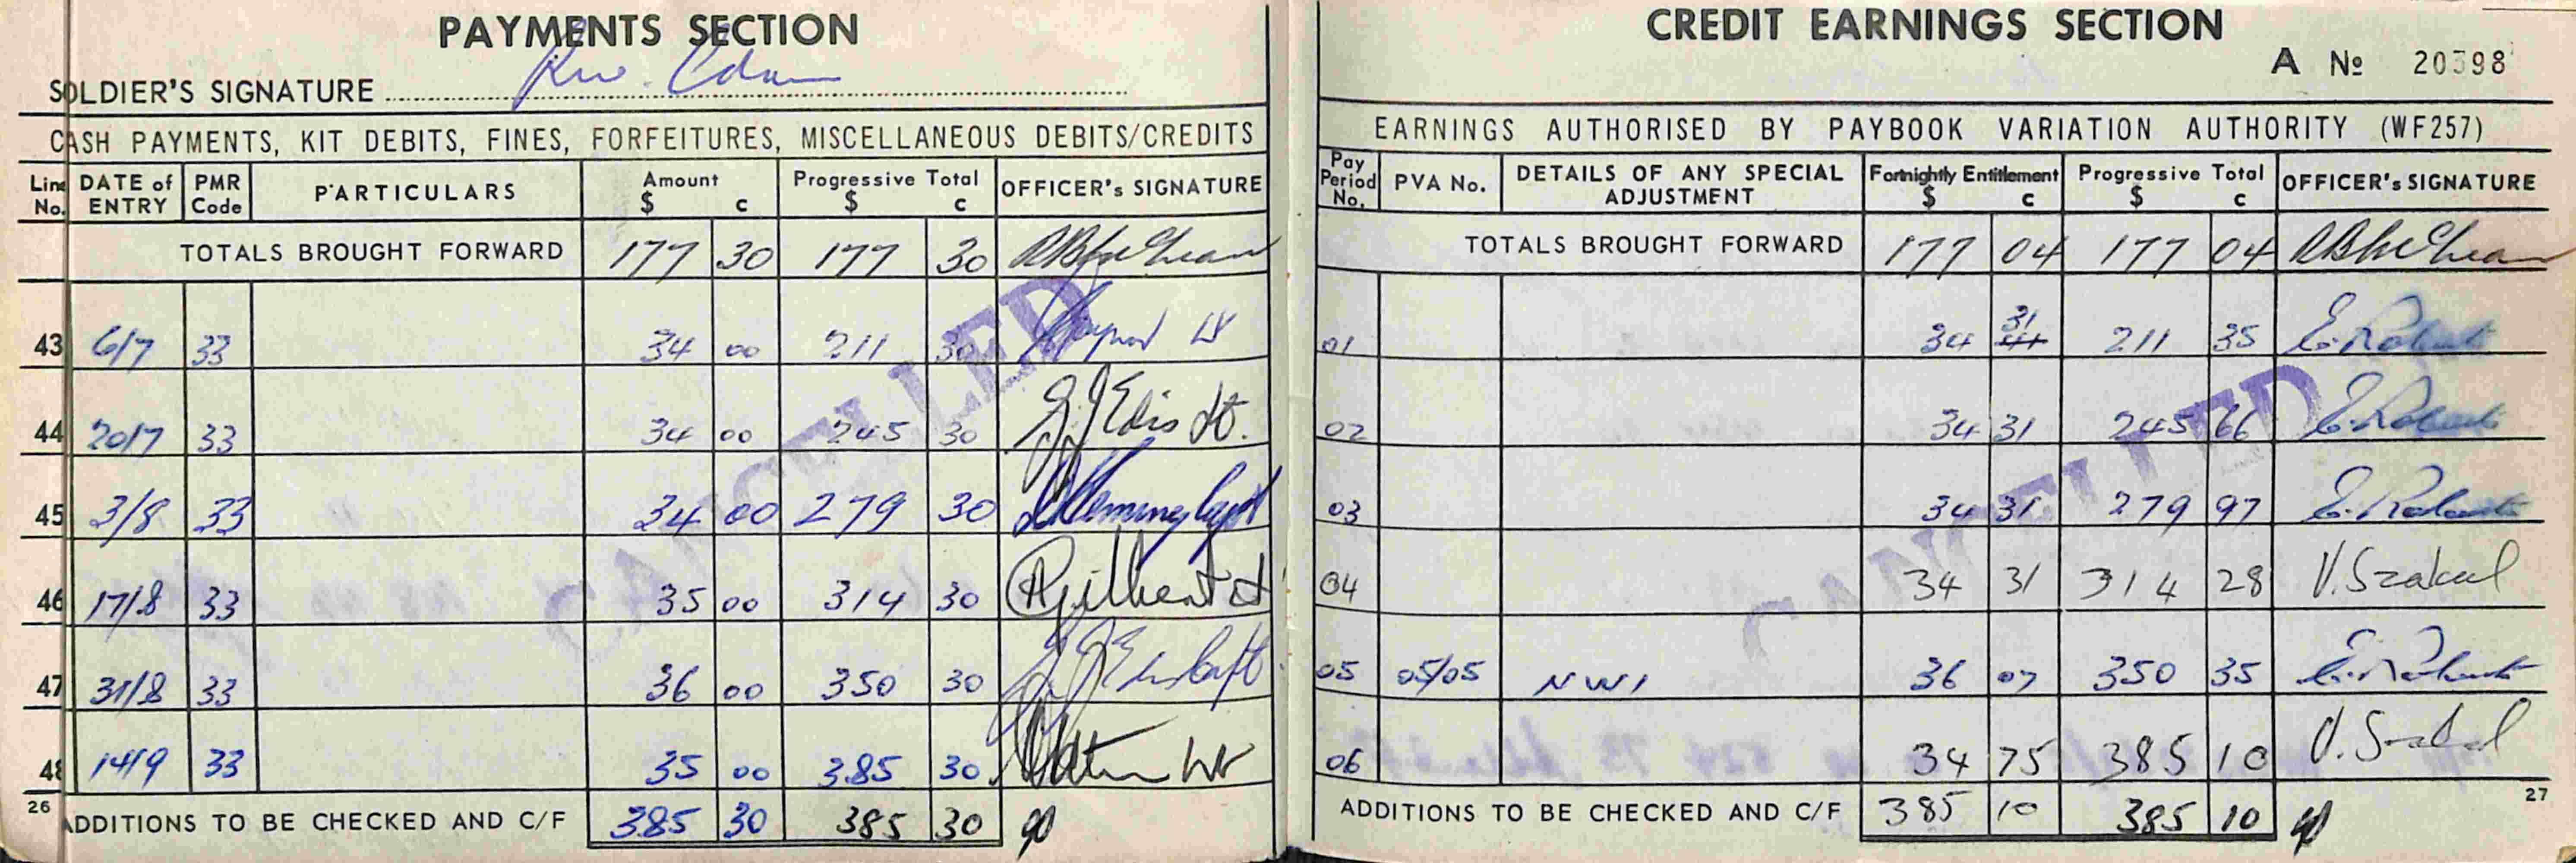 PAYMENTS SECTION
SOLDIER'S SIGNATURE
CASH PAYMENTS, KIT DEBITS, FINES, FORFEITURES, MISCELLANEOUS DEBITS/CREDITS
Line No. DATE of ENTRY PMR Code PARTICULARS Amount $ c Progressive Total $ c OFFICER's SIGNATURE
TOTALS BROUGHT FORWARD 177 30 177 30
43 6/7 33 34 00 211 30
44 20/7 33 34 00 245 30
45 3/8 33 34 00 279 30
46 17/8 33 35 00 314 30
47 31/8 33 36 00 350 30
48 14/9 33 35 00 385 30
ADDITIONS TO BE CHECKED AND C/F 385 30 385 30
26
CANCELLED
CREDIT EARNINGS SECTION
A No 20398
EARNINGS AUTHORISED BY PAYBOOK VARIATION AUTHORITY (WF257)
Pay Period No. PVA No. DETAILS OF ANY SPECIAL ADJUSTMENT Fortnightly Entitlement $ c Progressive Total $ c OFFICER's SIGNATURE
TOTALS BROUGHT FORWARD 177 04 177 04
01 34 31 211 35 E. Roberts
02 34 31 245 66 E. Roberts
03 34 31 279 97 E. Roberts
04 34 31 314 28 V. Szakul
05 05/05 NW1 36 07 350 35 E. Roberts
06 34 75 385 10 V. Szakul
ADDITIONS TO BE CHECKED AND C/F 385 10 385 10
27
CANCELLED